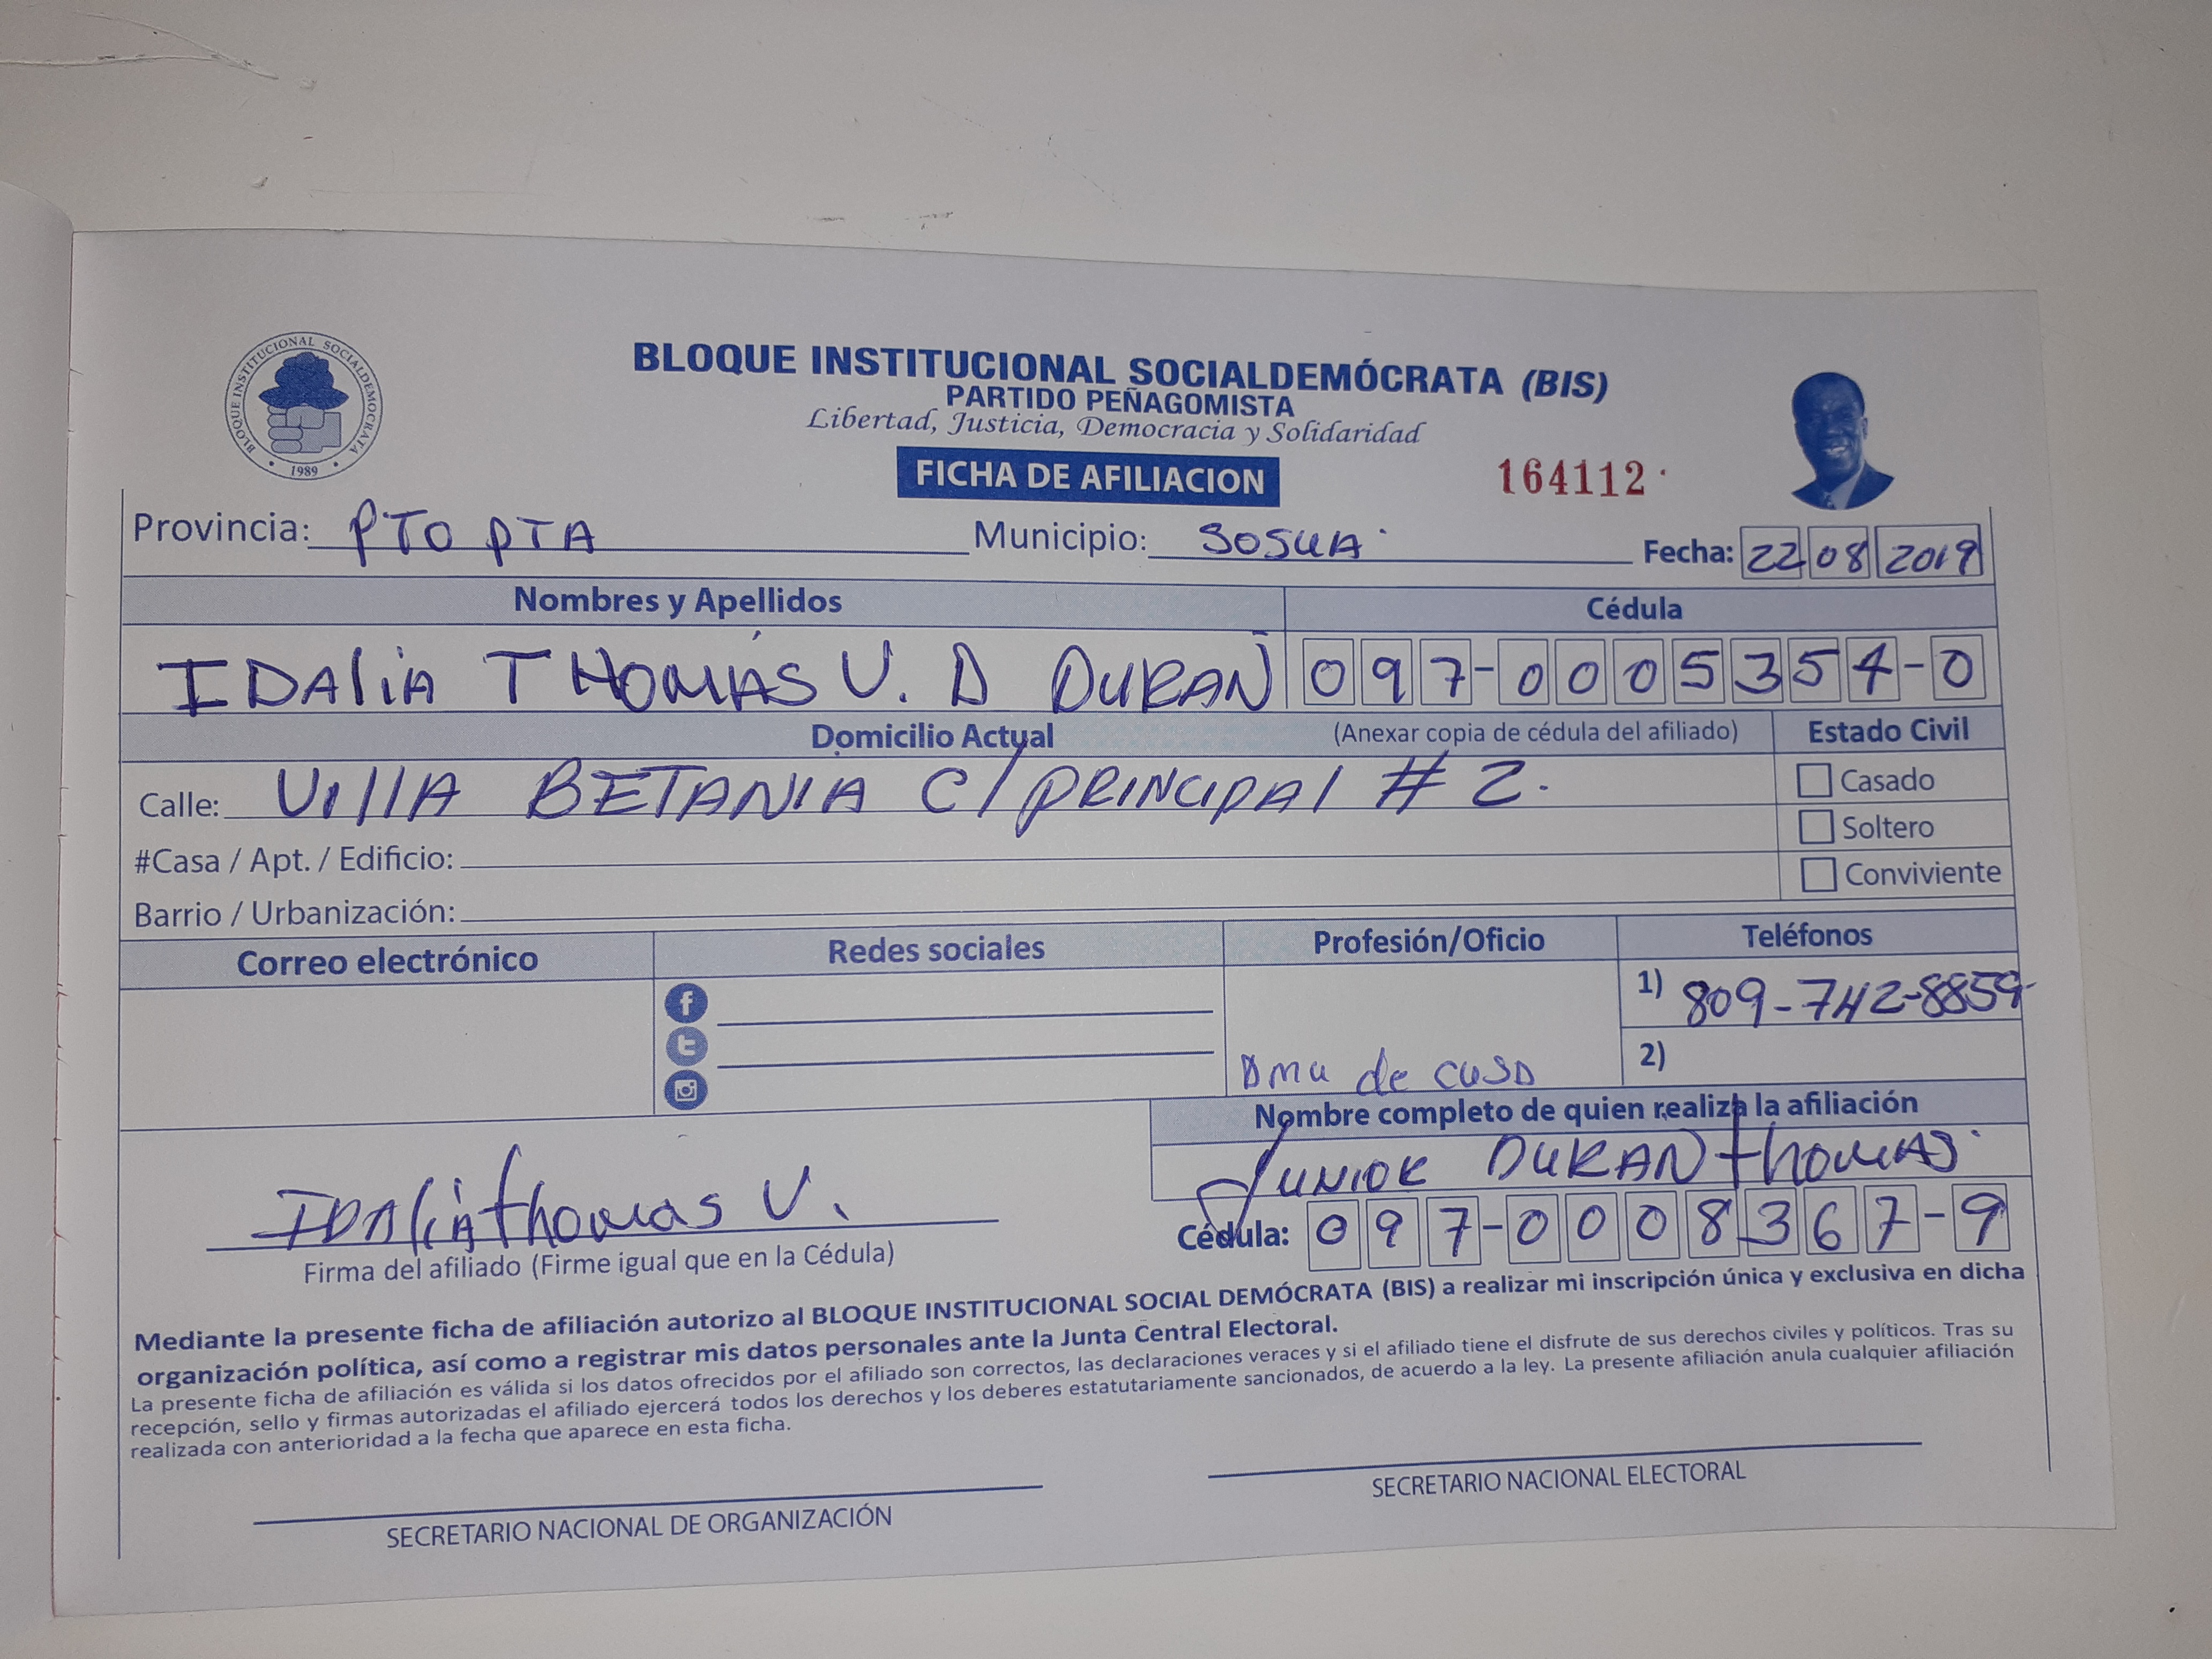 BLOQUE INSTITUCIONAL SOCIALDEMÓCRATA (BIS)
PARTIDO PEÑAGOMISTA
Libertad, Justicia, Democracia y Solidaridad
BLOQUE INSTITUCIONAL SOCIALDEMOCRATA
• 1989 •
FICHA DE AFILIACION
164112
Provincia: PTO PTA Municipio: SOSUA Fecha: 22 08 2019
Nombres y Apellidos Cédula
IDAliA THOMÁS V. D DURAN 097-0005354-0
Domicilio Actual (Anexar copia de cédula del afiliado) Estado Civil
Calle: VillA BETANIA C/ PRINCIPAl # 2. Casado
Soltero
#Casa / Apt. / Edificio:
Conviviente
Barrio / Urbanización:
Correo electrónico Redes sociales Profesión/Oficio Teléfonos
1) 809-742-8859-
2)
Dma de casa
Nombre completo de quien realiza la afiliación
JUNIOR DURAN thOMAS
IDAliA thomas V.
Cédula: 097-0008367-9
Firma del afiliado (Firme igual que en la Cédula)
Mediante la presente ficha de afiliación autorizo al BLOQUE INSTITUCIONAL SOCIAL DEMÓCRATA (BIS) a realizar mi inscripción única y exclusiva en dicha
organización política, así como a registrar mis datos personales ante la Junta Central Electoral.
La presente ficha de afiliación es válida si los datos ofrecidos por el afiliado son correctos, las declaraciones veraces y si el afiliado tiene el disfrute de sus derechos civiles y políticos. Tras su
recepción, sello y firmas autorizadas el afiliado ejercerá todos los derechos y los deberes estatutariamente sancionados, de acuerdo a la ley. La presente afiliación anula cualquier afiliación
realizada con anterioridad a la fecha que aparece en esta ficha.
SECRETARIO NACIONAL DE ORGANIZACIÓN
SECRETARIO NACIONAL ELECTORAL